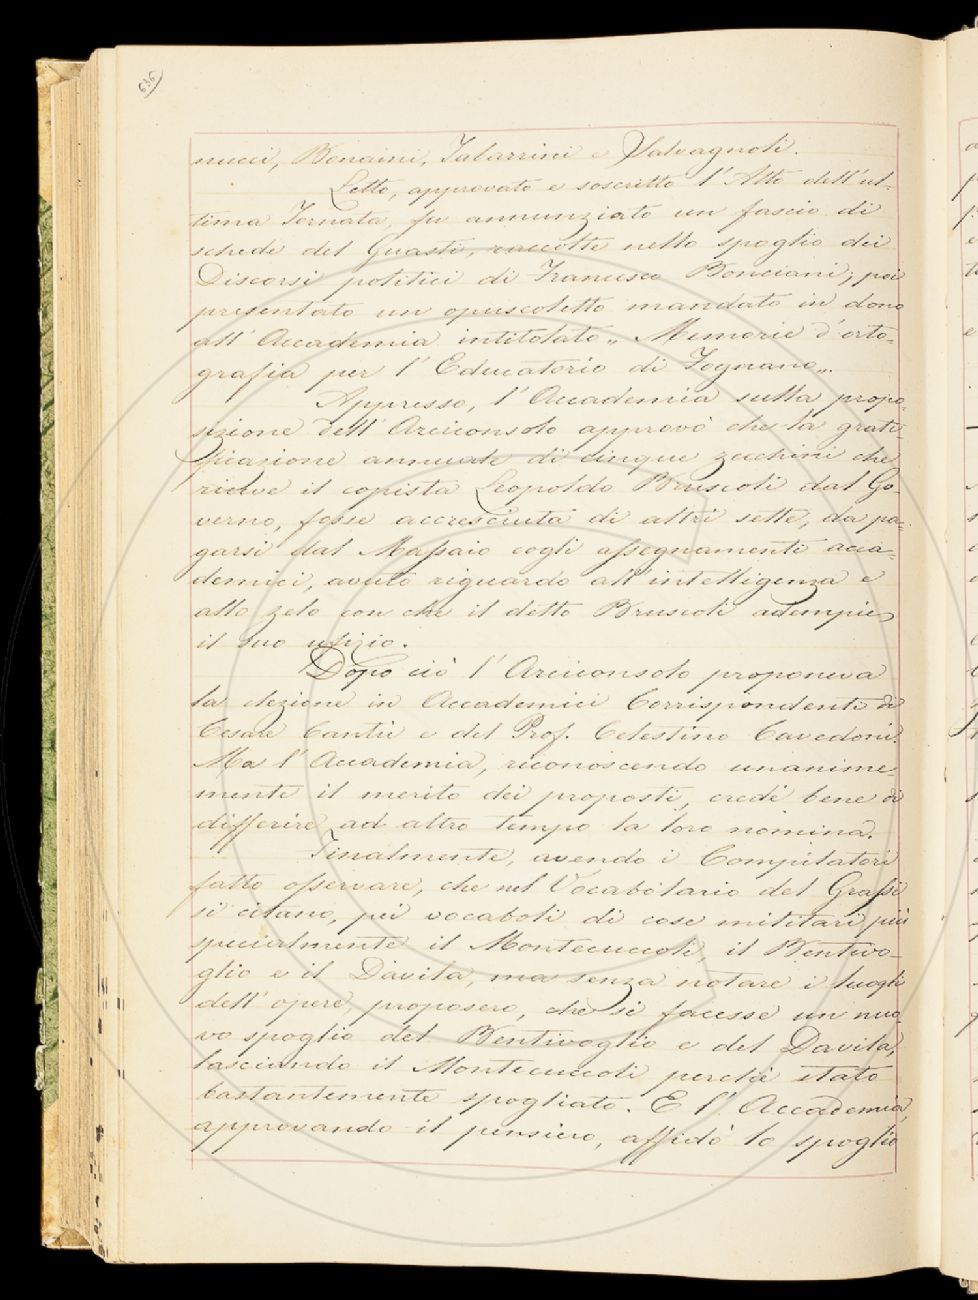 636
nucci, Bonaini, Tabarrini e Salvagnoli.
Letto, approvato e soscritto l'Atto dell'ul-
tima Tornata, fu annunziato un fascio di
schede del Guasti, raccolte nello spoglio dei
Discorsi politici di Francesco Bonciani; poi
presentato un opuscoletto mandato in dono
all'Accademia intitolato „ Memorie d'orto-
grafia per l'Educatorio di Fognano„.
Appresso, l'Accademia sulla propo-
sizione dell'Arciconsolo approvò che la grati-
ficazione annuale di cinque zecchini che
riceve il copista Leopoldo Bruscoli dal Go-
verno, fosse accresciuta di altri sette, da pa-
garsi dal Massaio cogli assegnamenti acca-
demici, avuto riguardo all'intelligenza e
allo zelo con che il detto Bruscoli adempie
il suo ufizio.
Dopo ciò l'Arciconsolo proponeva
la elezione in Accademici Corrispondenti di
Cesare Cantù e del Prof. Celestino Cavedoni.
Ma l'Accademia, riconoscendo unanime-
mente il merito dei proposti, credè bene di
differire ad altro tempo la loro nomina.
Finalmente, avendo i Compilatori
fatto osservare, che nel Vocabolario del Grassi
si citano, pei vocaboli di cose militari più
specialmente il Montecuccoli, il Bentivo-
glio e il Davila, ma senza notare i luoghi
dell'opere, proposero, che si facesse un nuo-
vo spoglio del Bentivoglio e del Davila,
lasciando il Montecuccoli perchè stato
bastantemente spogliato. E l'Accademia,
approvando il pensiero, affidò lo spoglio